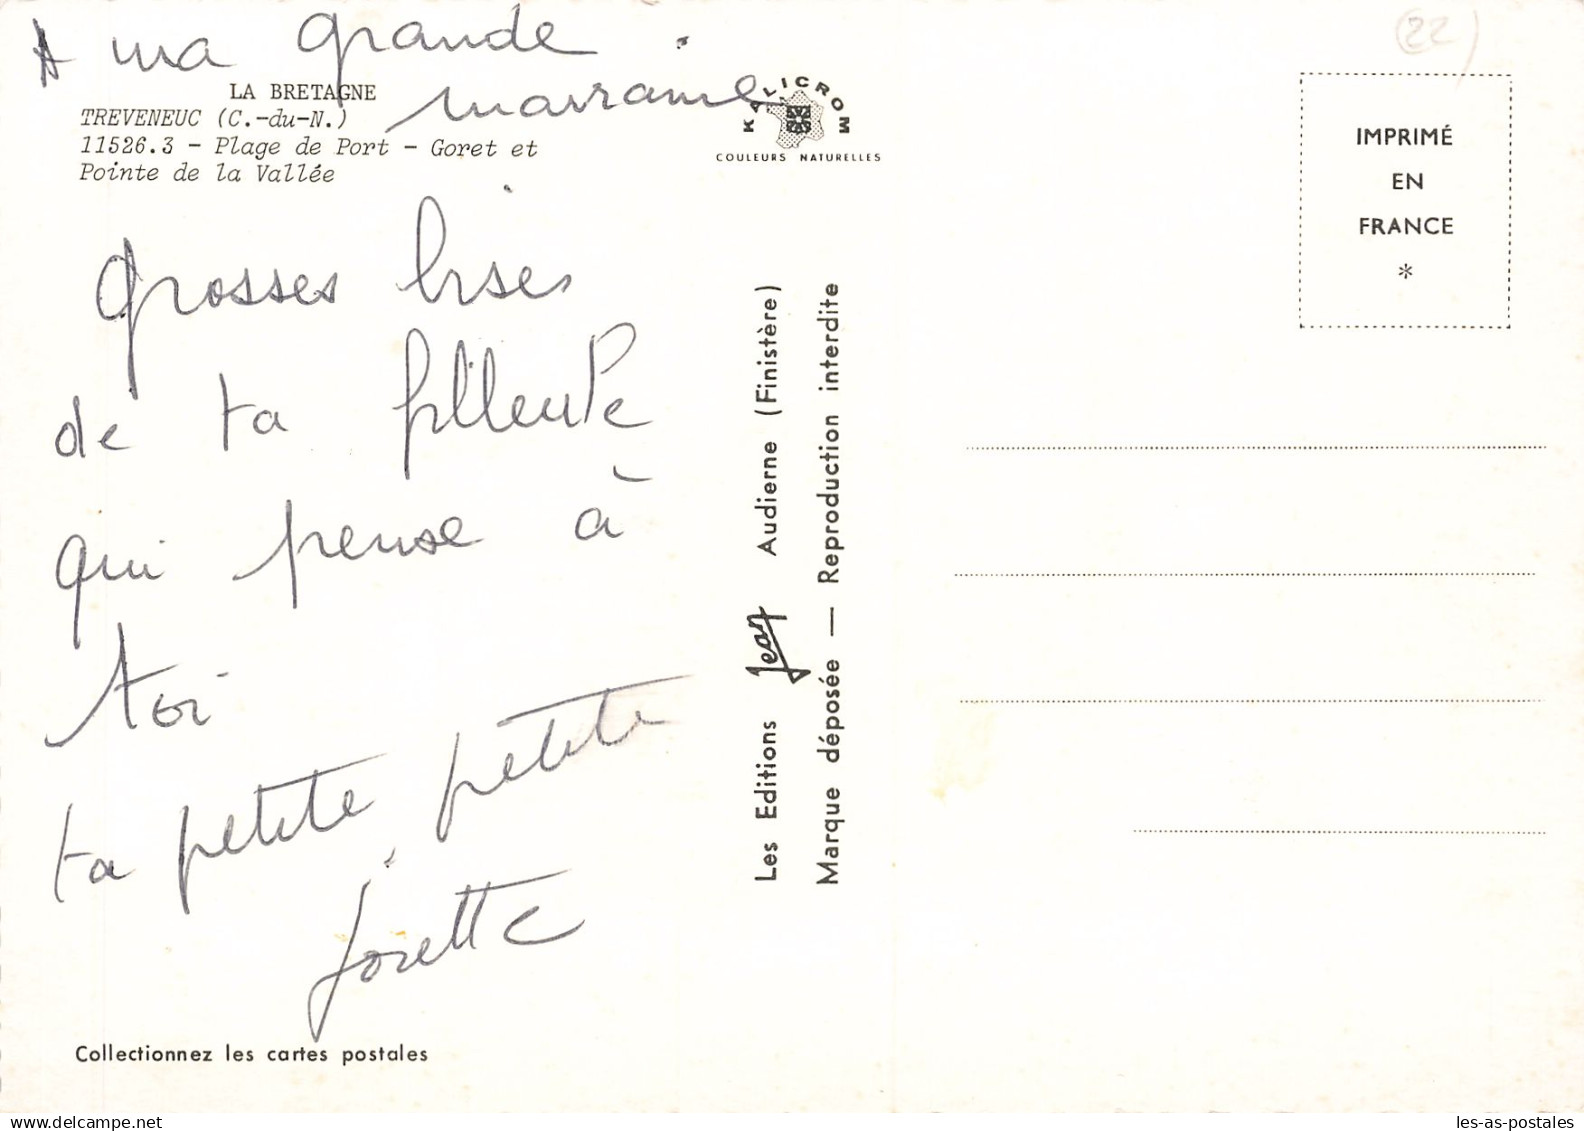 A ma grande
marraine
LA BRETAGNE
TREVENEUC (C.-du-N.)
11526.3 - Plage de Port - Goret et
Pointe de la Vallée
KALICROM
COULEURS NATURELLES
(22)
IMPRIMÉ
EN
FRANCE
*
grosses bises
de ta filleule
qui pense à
toi
ta petite petite
Josette
Les Editions Jean Audierne (Finistère)
Marque déposée — Reproduction interdite
Collectionnez les cartes postales
les-as-postales